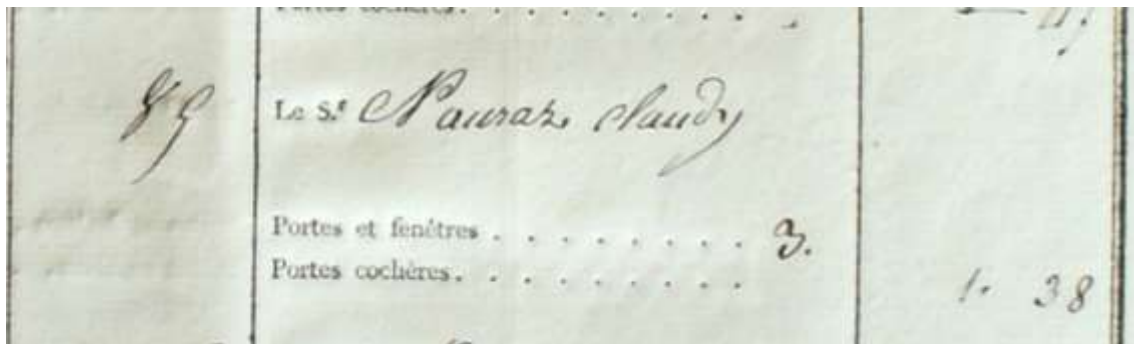 Portes cochères.
89 Le S.r Nauraz claudy
Portes et fenêtres . . . . . . . . 3.
Portes cochères. . . . . . . . .
1. 38